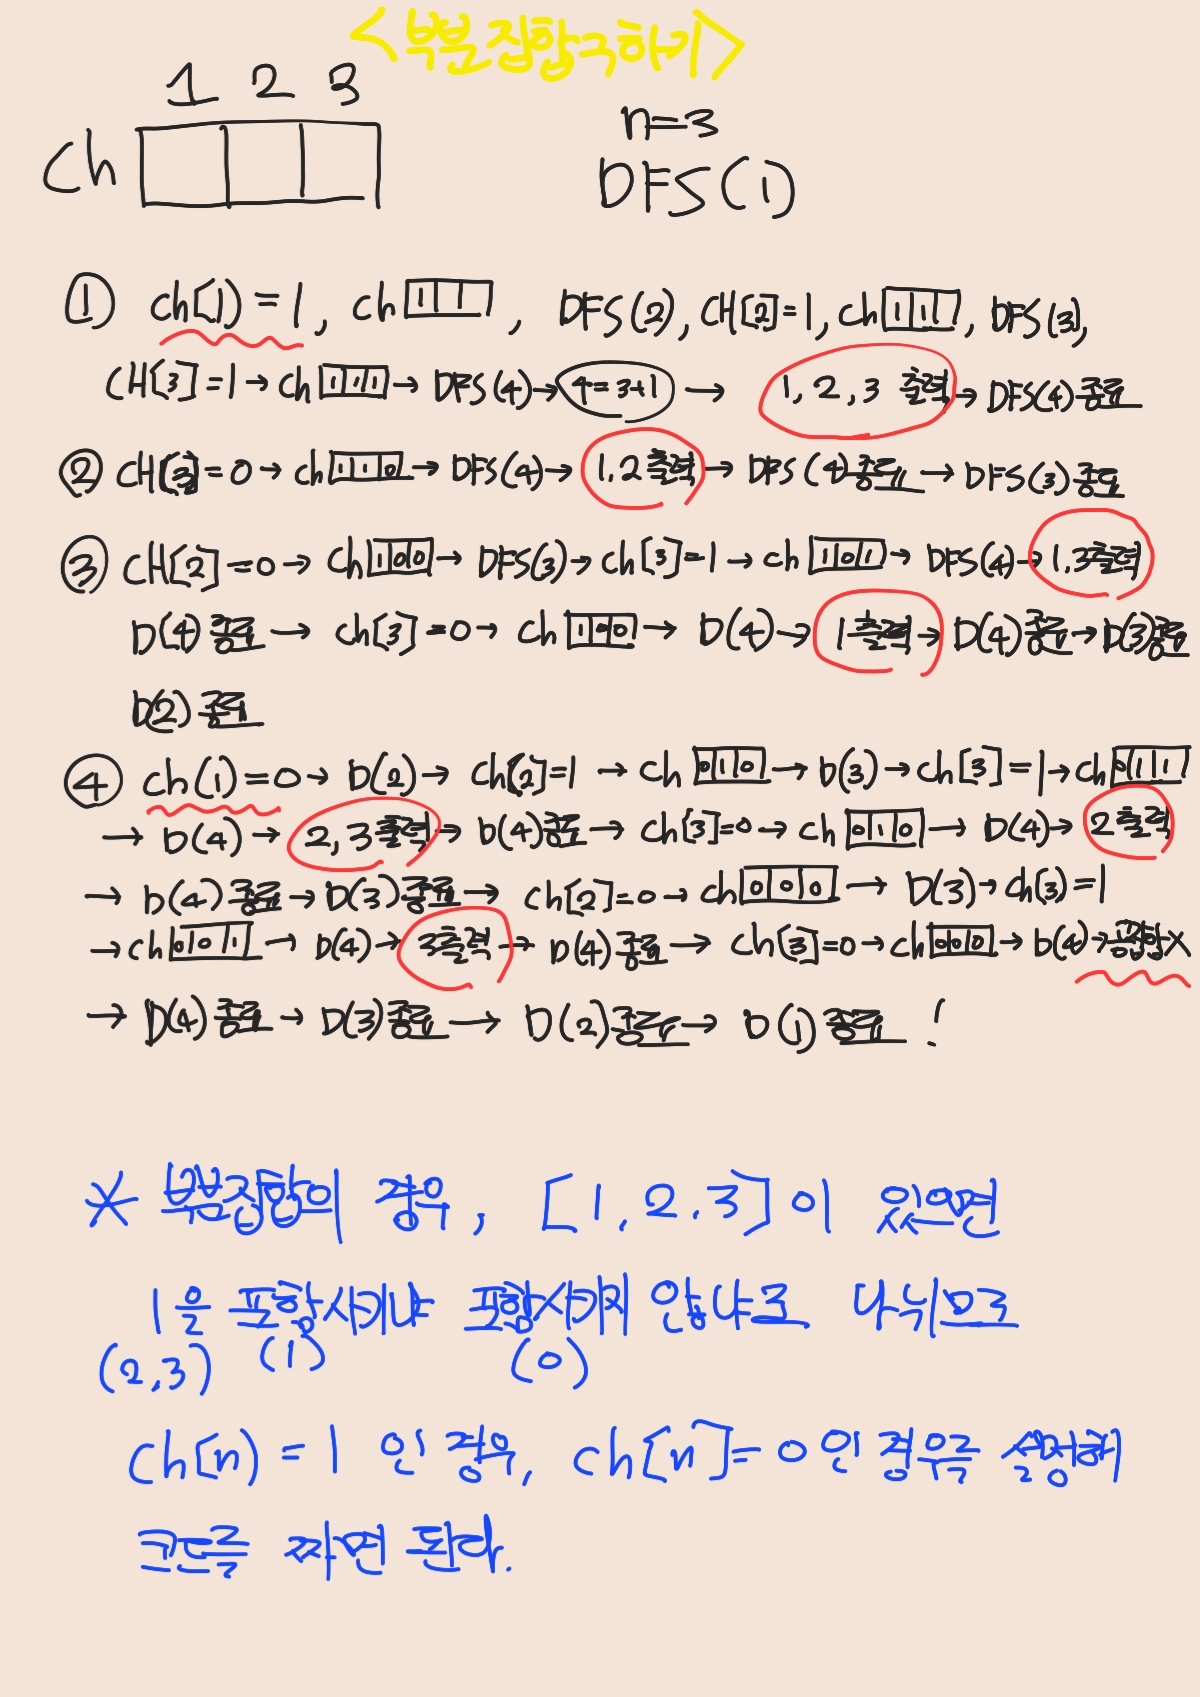 <부분집합구하기>
1 2 3
ch
n=3
DFS(1)
① ch[1)=1, ch 1, DFS(2), CH[2]=1, ch 1 1, DFS(3),
CH[3]=1→ch 1 1 1→DFS(4)→4=3+1→ 1,2,3 출력→DFS(4)종료
② CH[3]=0→ch 1 1 0→DFS(4)→1,2출력→DFS(4)종료→DFS(3)종료
③ CH[2]=0→ch 1 0 0→DFS(3)→ch[3]=1→ch 1 0 1→DFS(4)→1,3출력
D(4)종료→ch[3]=0→ch 1 0 0→D(4)→1출력→D(4)종료→D(3)종료
D(2)종료
④ ch(1)=0→D(2)→ch[2]=1→ch 0 1 0→D(3)→ch[3]=1→ch 0 1 1
→D(4)→2,3출력→D(4)종료→ch[3]=0→ch 0 1 0→D(4)→2출력
→D(4)종료→D(3)종료→ch[2]=0→ch 0 0 0→D(3)→ch[3)=1
→ch 0 0 1→D(4)→3출력→D(4)종료→ch[3]=0→ch 0 0 0→D(4)→공집합X
→D(4)종료→D(3)종료→D(2)종료→D(1)종료!
* 부분집합의 경우, [1,2,3]이 있으면
1을 포함시키냐 포함시키지 않냐로 나눠지므로
(2,3) (1) (0)
ch[n)=1인 경우, ch[n]=0인 경우로 설정해
코드를 짜면 된다.